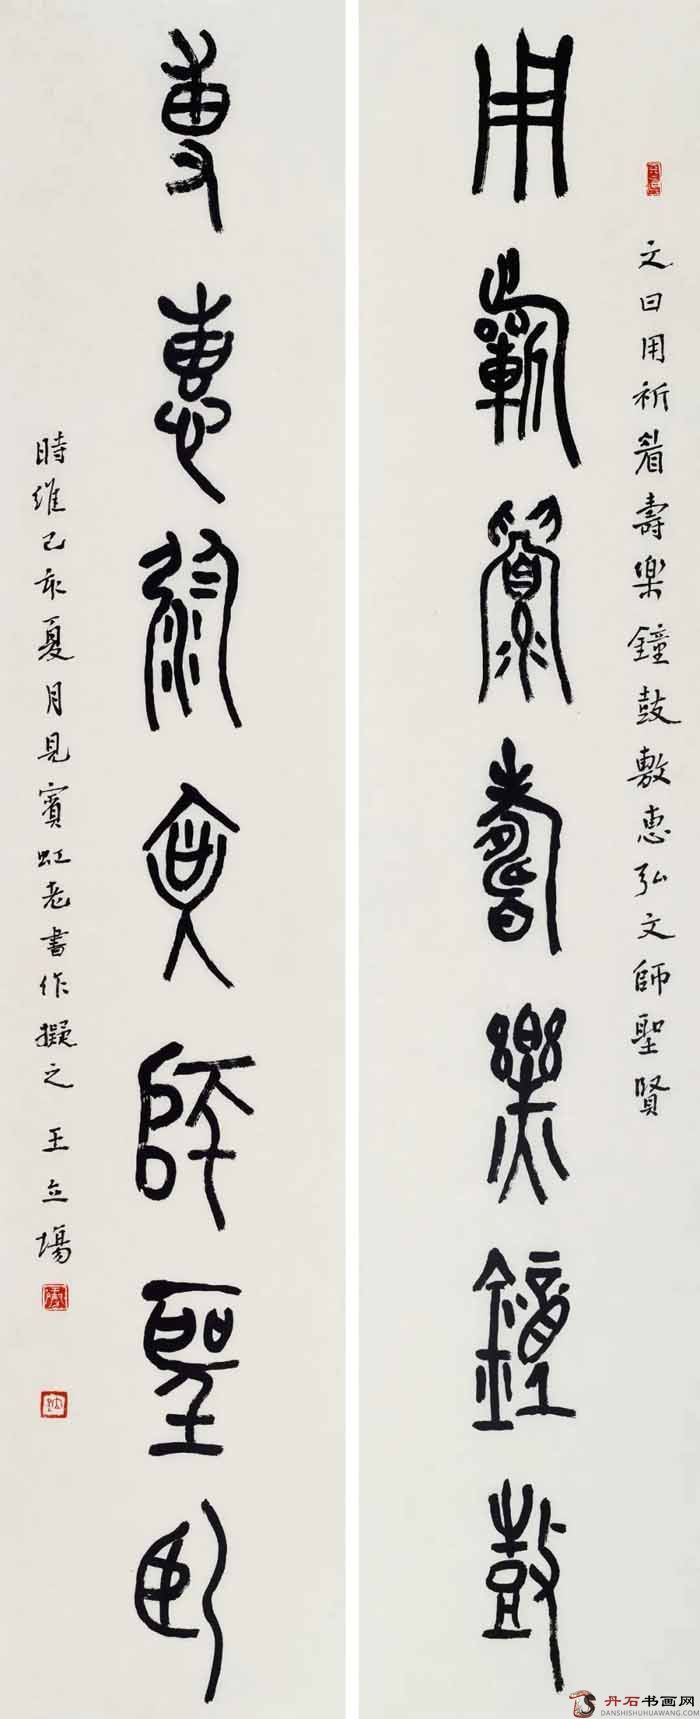 文曰用祈眉壽樂鐘鼓敷惠弘文師聖賢
用祈眉壽樂鐘鼓
尃惠弘文師聖臤
時維己亥夏月見賓虹老書作擬之 王立場
丹石书画网
DANSHISHUHUAWANG.COM